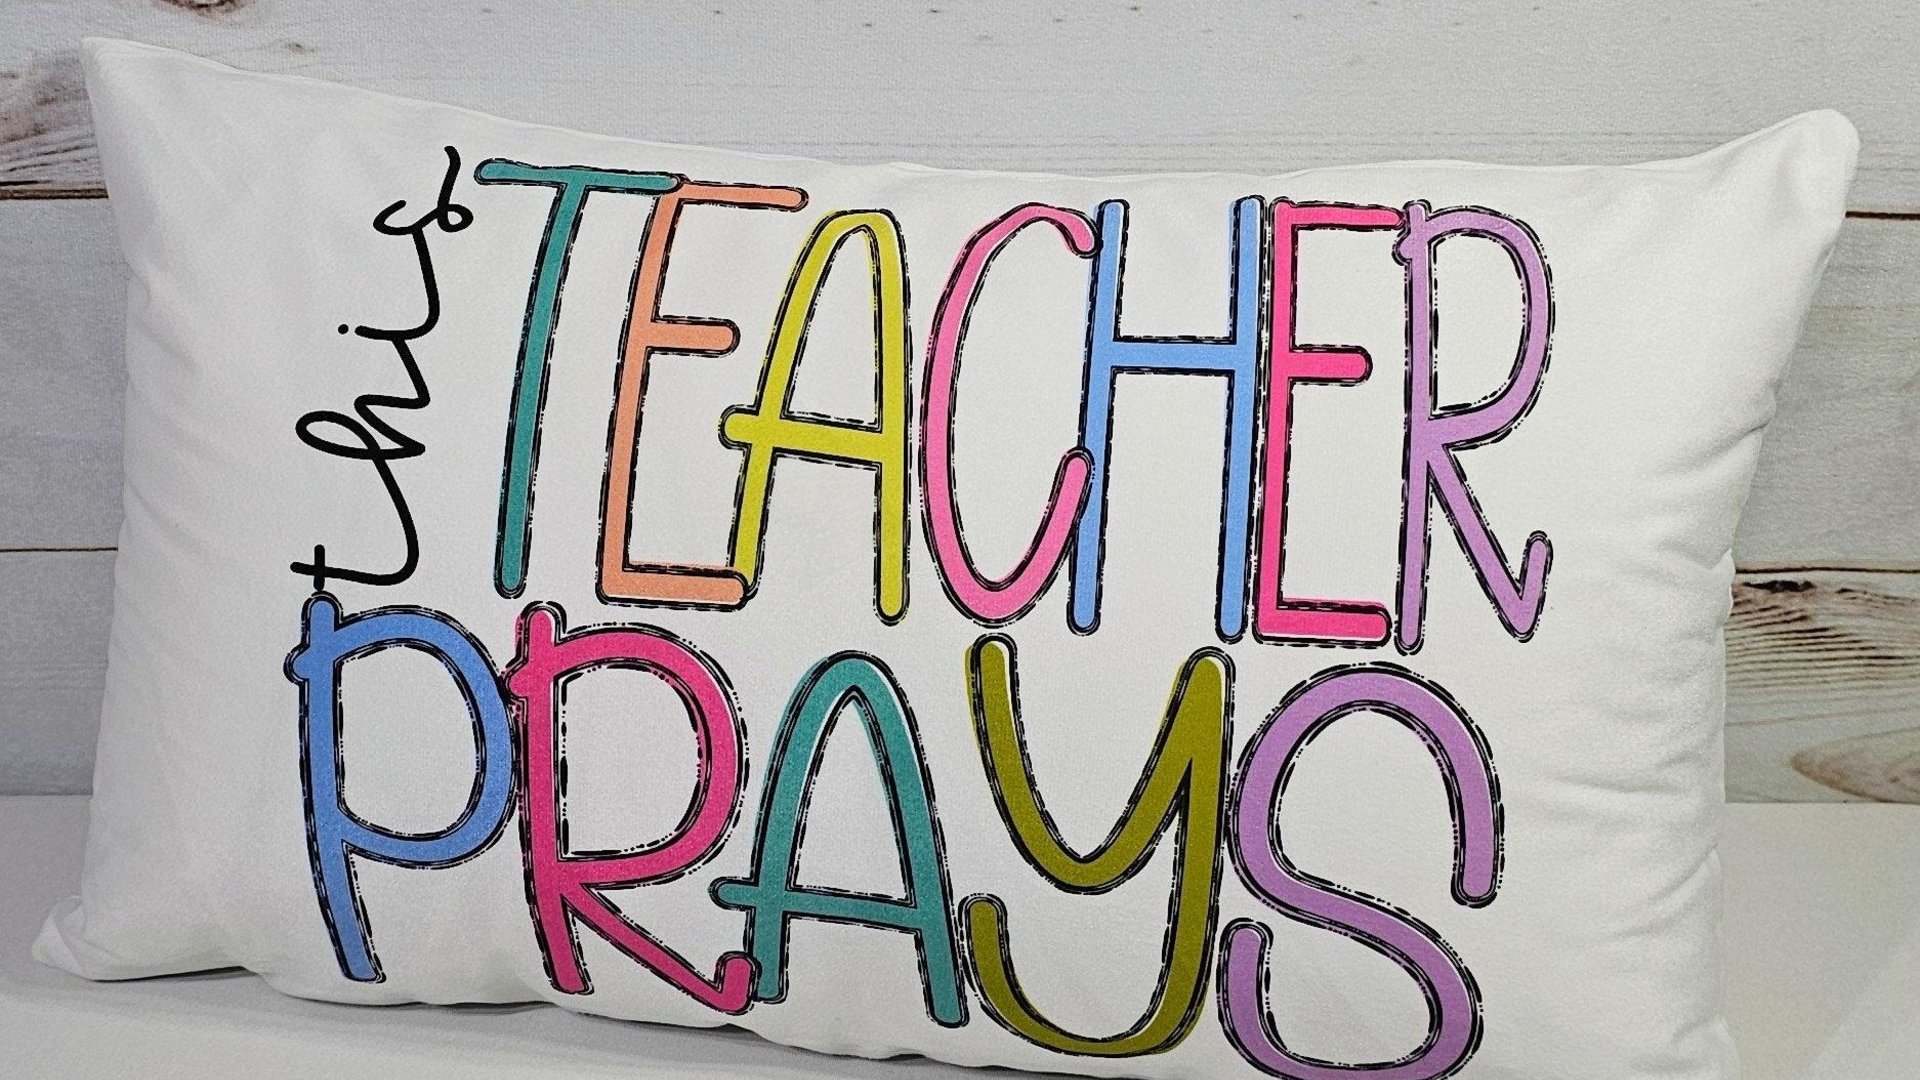 this
TEACHER
PRAYS